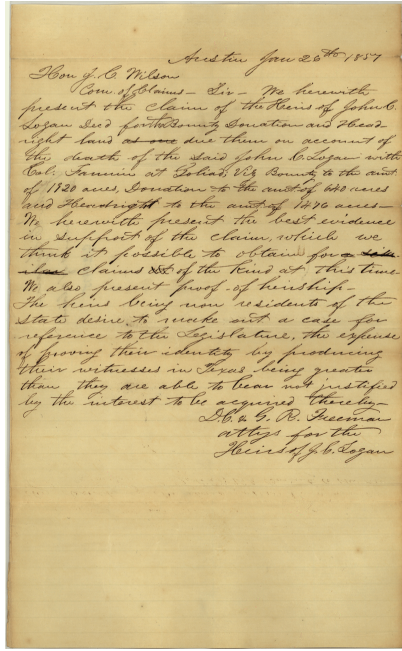 Austin Jan 26th 1857
Hon J. C Wilson
Com. of Claims - Sir - We herewith
present the claim of the Heirs of John C.
Logan Decd for the Bounty Donation and Head-
right land as one due them on account of
the death of the said John C. Logan with
Col. Fannin at Goliad, Viz Bounty to the amt
of 1920 acres, Donation to the amt of 640 acres
and Headright to the amt of 1476 acres -
We herewith present the best evidence
in support of the claim, which we
think it possible to obtain for a sim
ilar claims of the kind at this time
We also present proof of heirship -
The heirs being non residents of the
State desire to make out a case for
reference to the Legislature, the expense
of proving their identity by producing
their witnesses in Texas being greater
than they are able to bear not justified
by the interest to be acquired thereby -
D. C. & G. R. Freeman
attys for the
Heirs of J. C. Logan